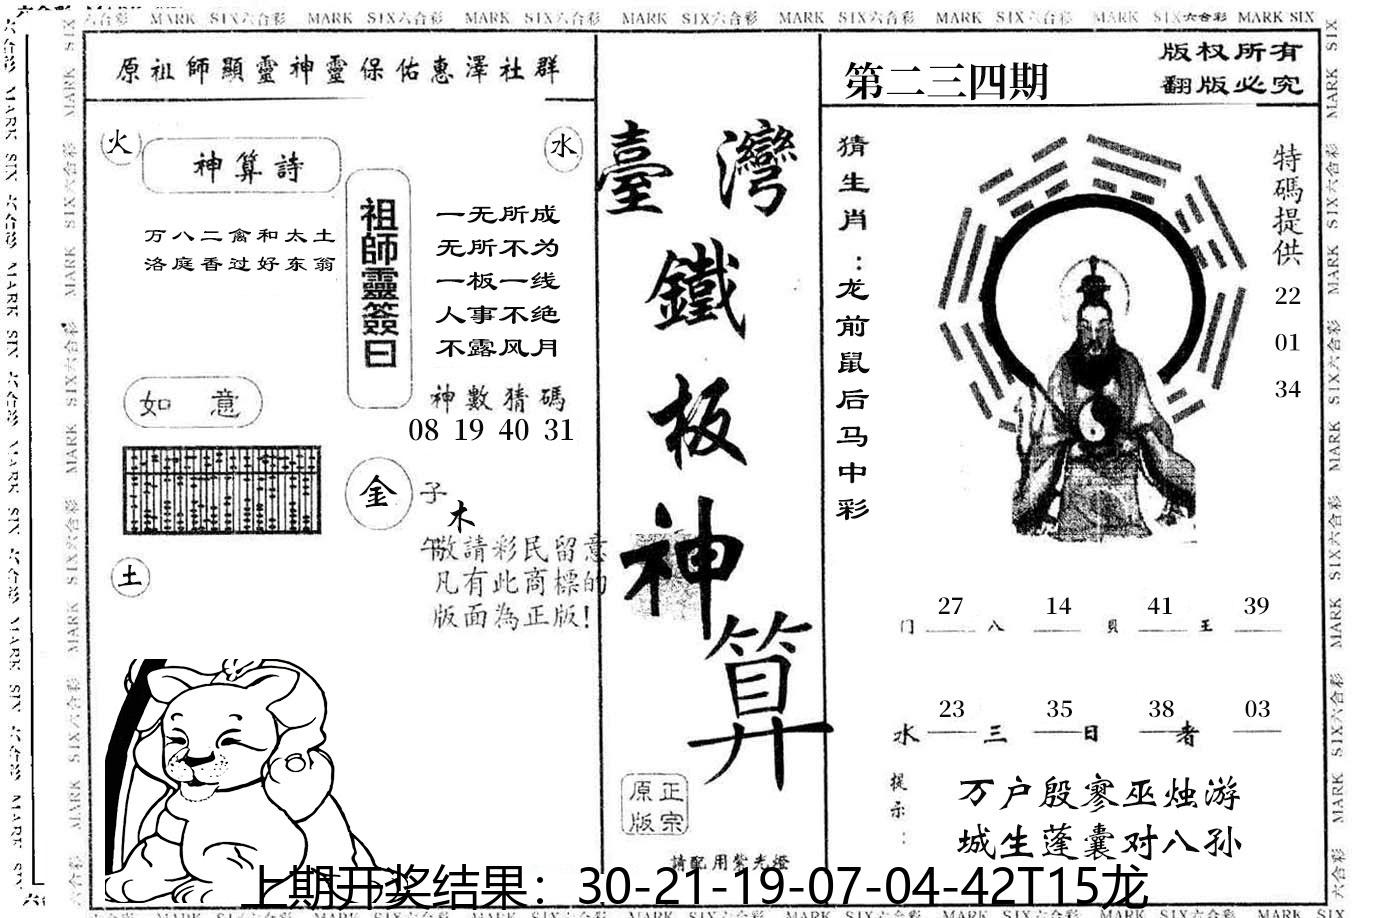 MARK SIX六合彩 MARK SIX六合彩 MARK SIX六合彩 MARK SIX六合彩 MARK SIX六合彩 MARK SIX六合彩 MARK SIX六合彩 MARK SIX
原祖師顯靈神靈保佑惠澤社群
火
神算詩
水
万八二禽和太土
洛庭香过好东翁
祖師靈簽曰
一无所成
无所不为
一板一线
人事不绝
不露风月
如意
神數猜碼
08 19 40 31
金
子
木
午
敬請彩民留意
凡有此商標的
版面為正版!
土
臺灣
鐵
板
神
算
原正
版宗
請配用紫光燈
第二三四期
版权所有
翻版必究
猜生肖:龙前鼠后马中彩
特碼提供
22
01
34
27 14 41 39
门 八 貝 王
23 35 38 03
水 三 日 者
提示:
万户殷寥巫烛游
城生蓬囊对八孙
上期开奖结果：30-21-19-07-04-42T15龙